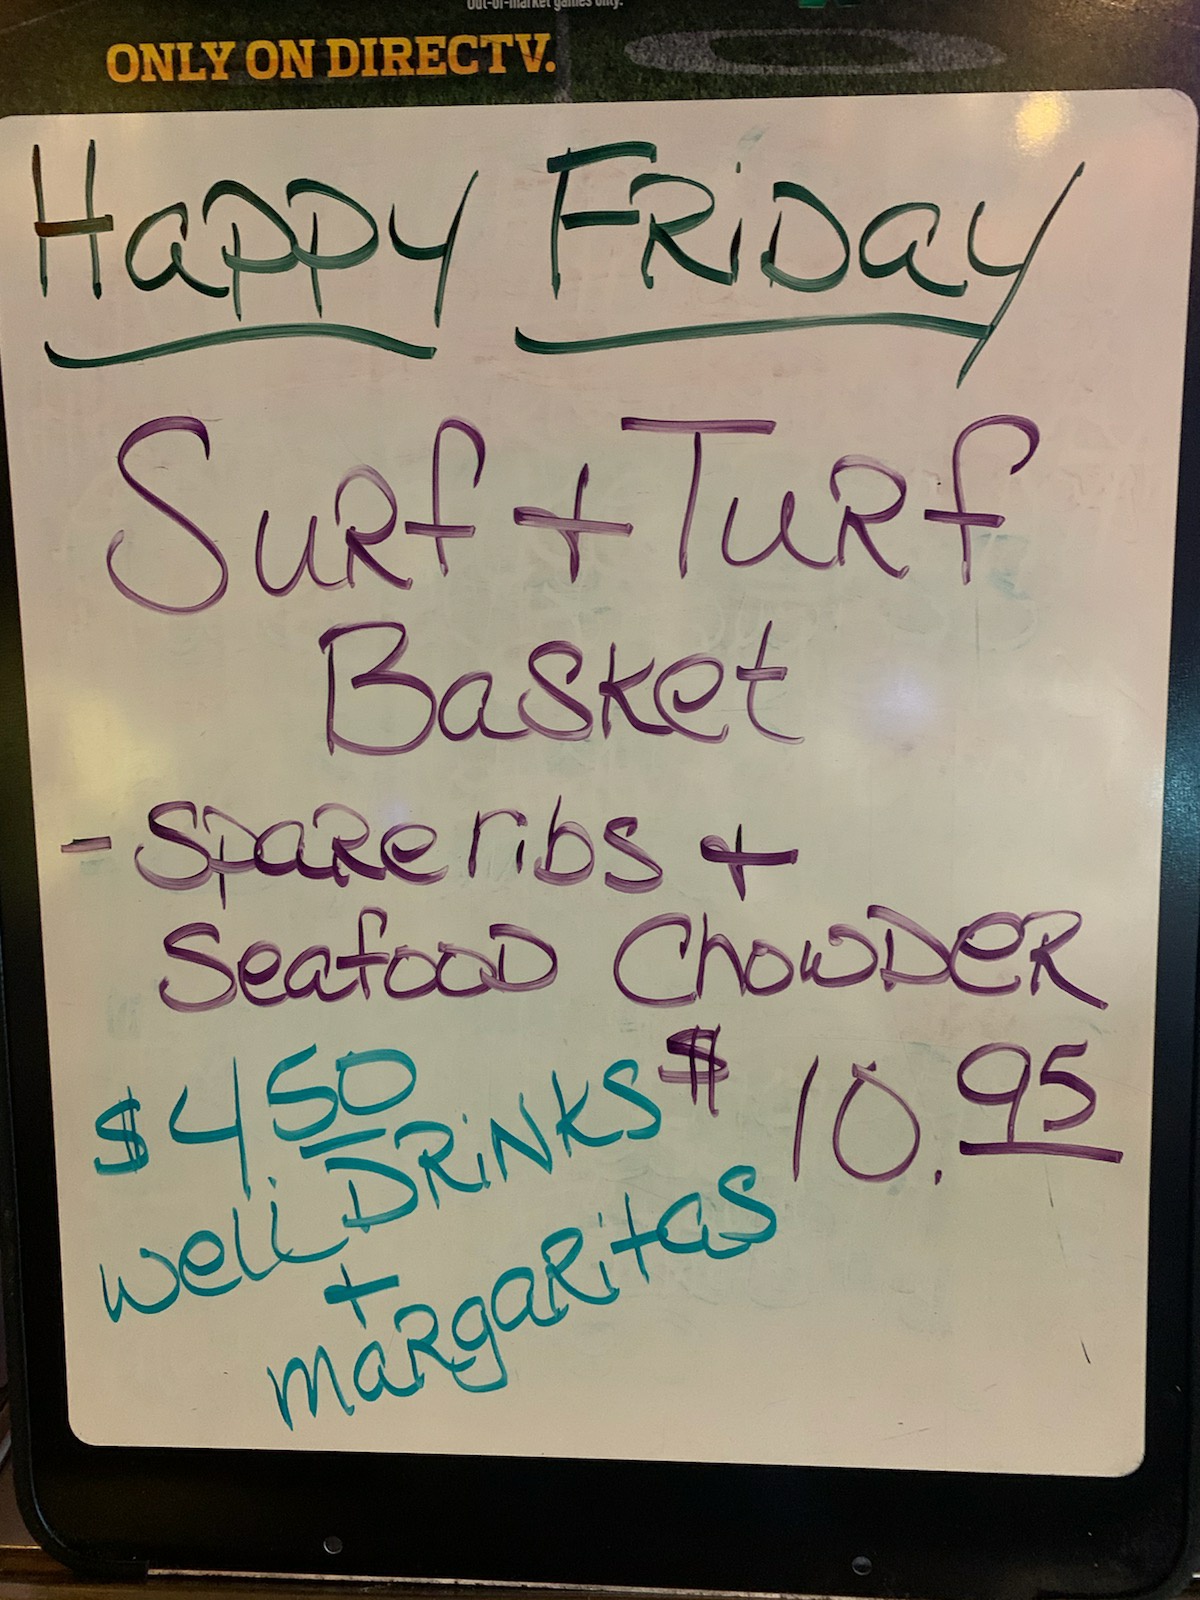 Out-of-market games only.
ONLY ON DIRECTV.
Happy FRiDay
SuRf + TuRf
Basket
- Spare ribs +
Seafood ChowDeR
$ 10.95
$4.50
well DRiNKS
+
maRgaRitas